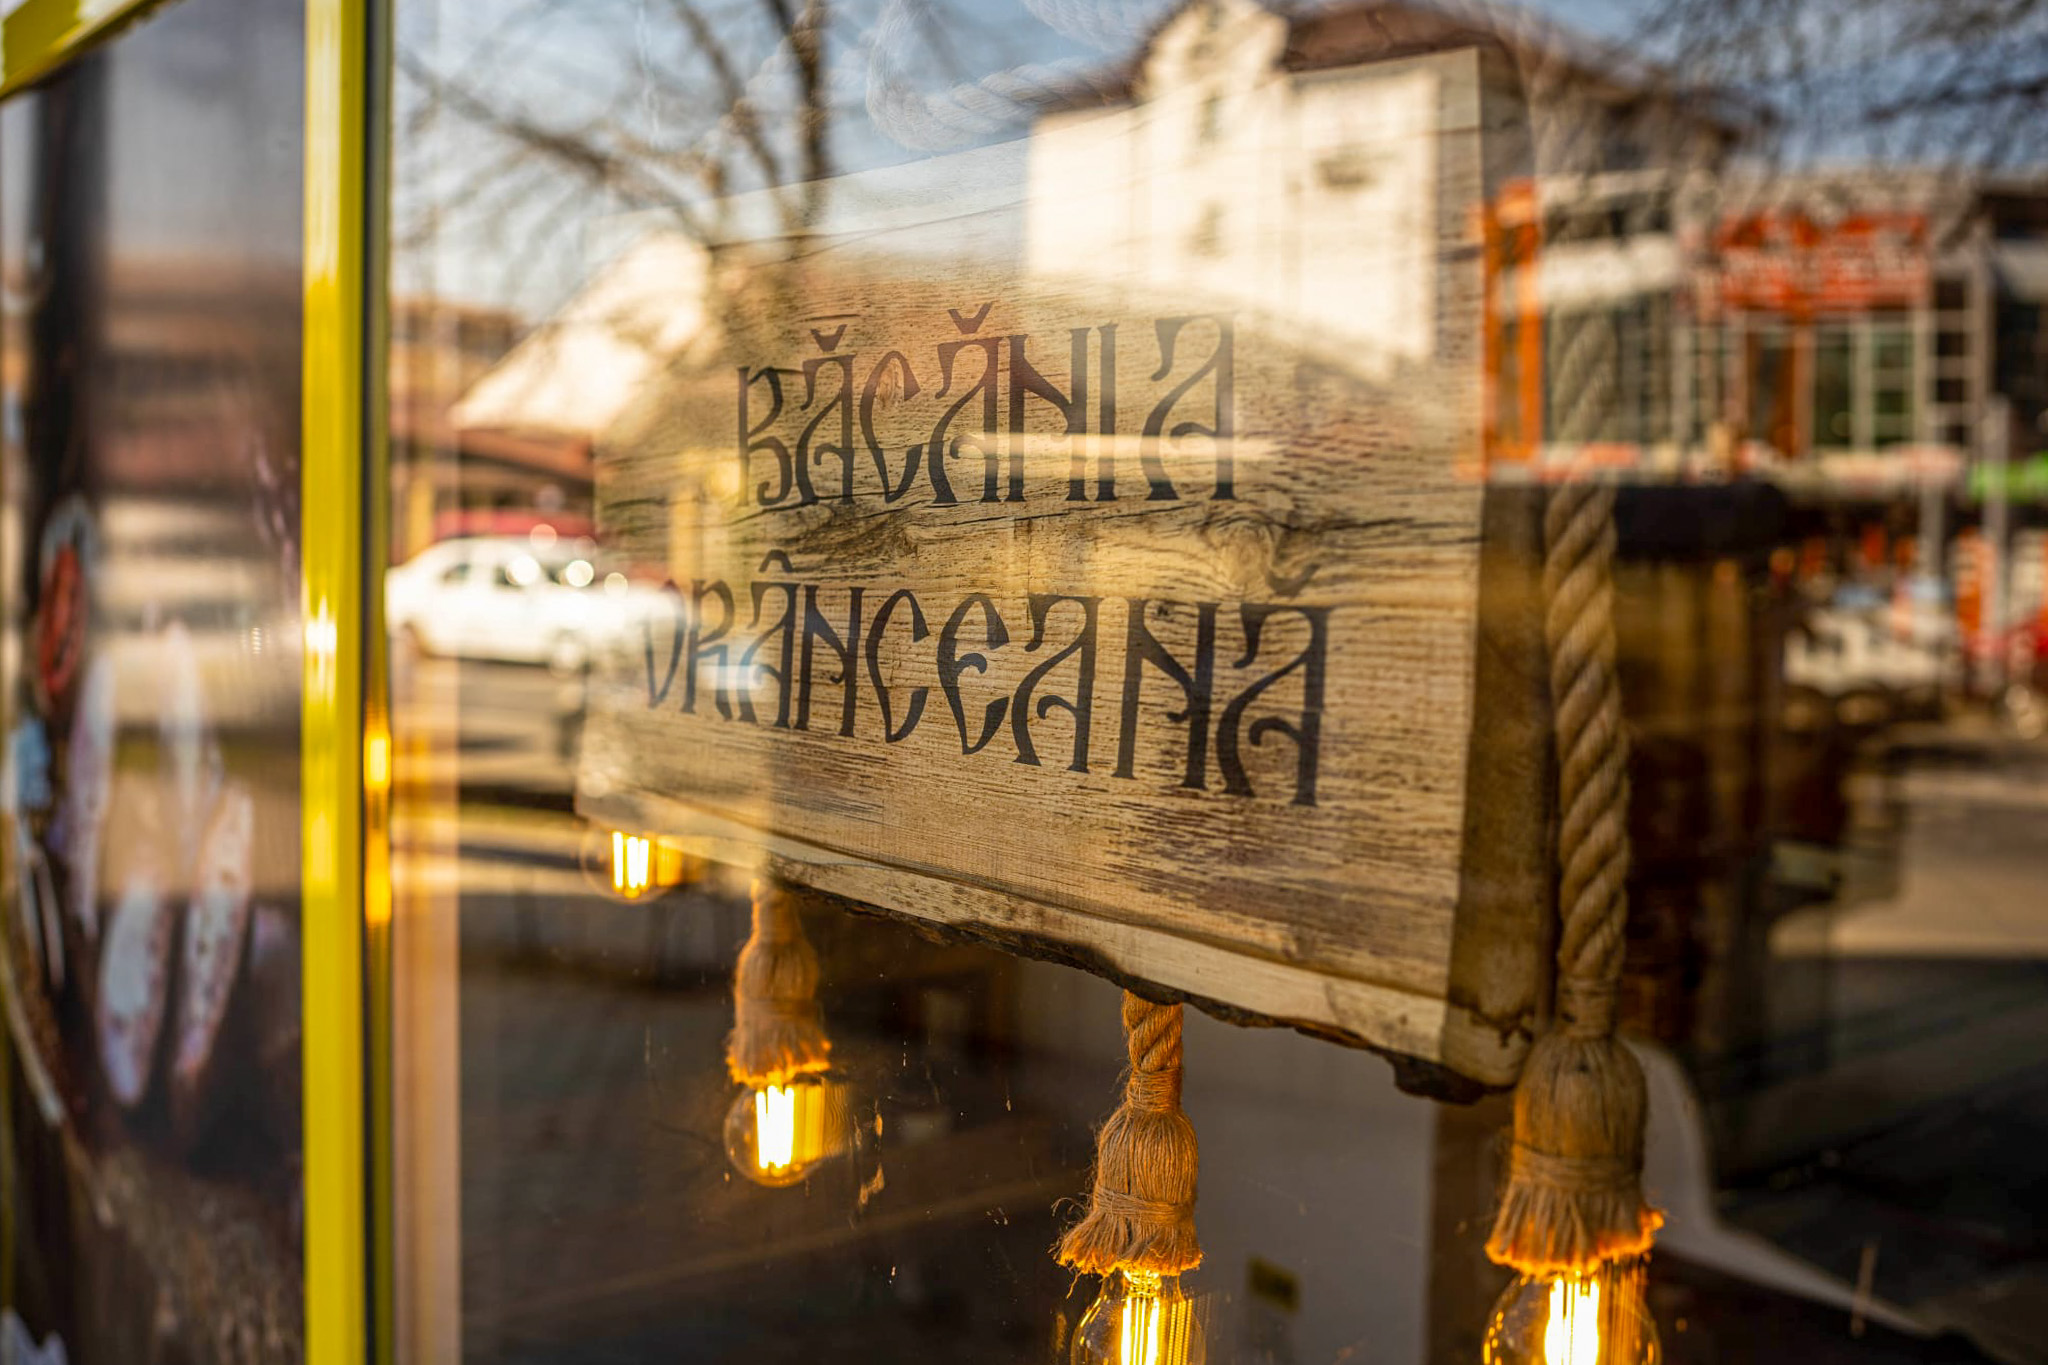 BĂCĂNIA
VRÂNCEANĂ